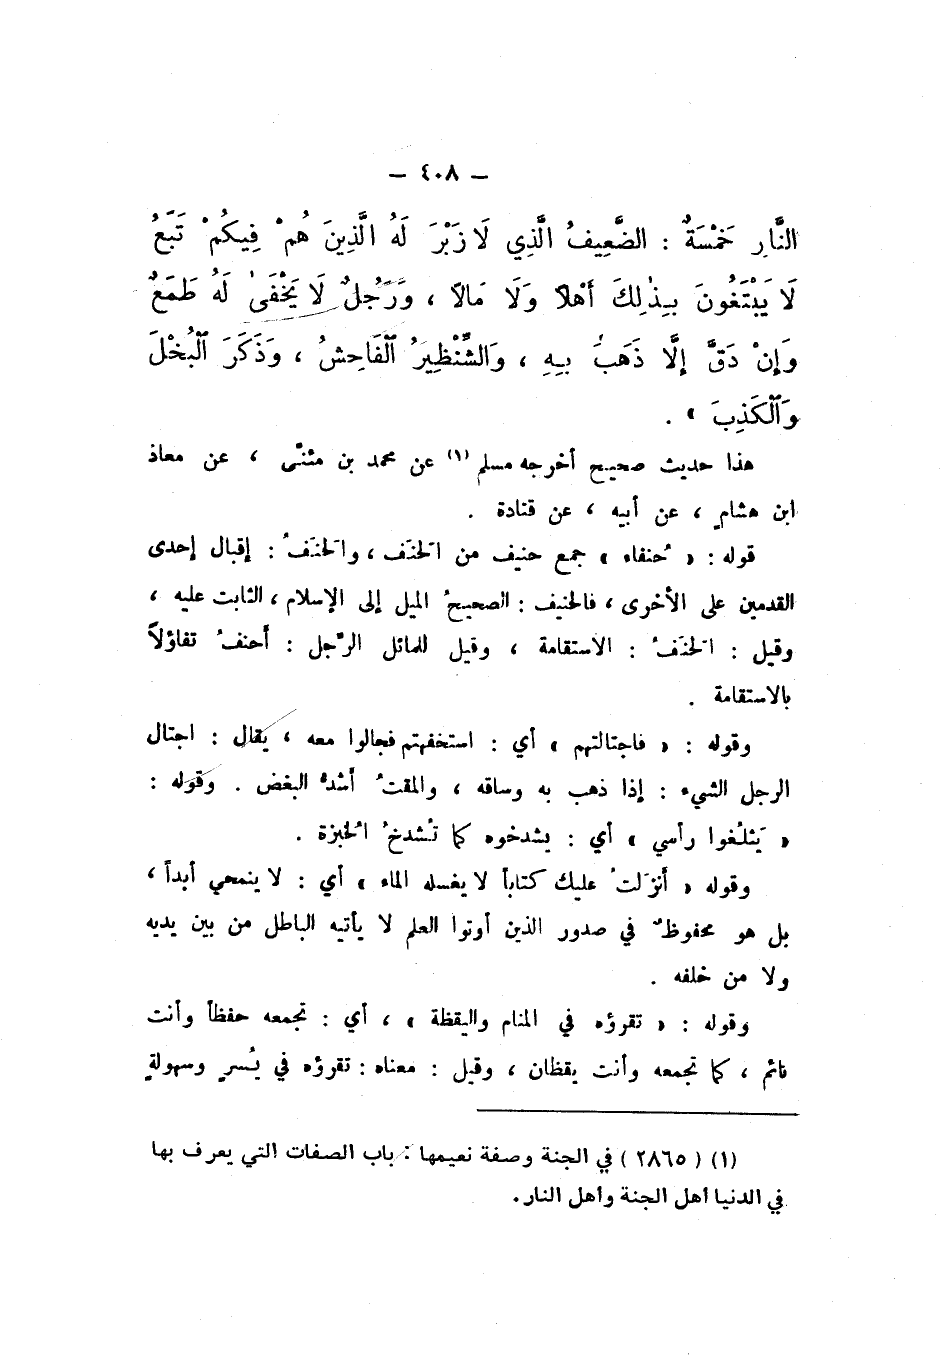 — ٤٠٨ —
النَّارِ خَمْسَةٌ : الضَّعِيفُ الَّذِي لَا زَبْرَ لَهُ الَّذِينَ هُمْ فِيكُمْ تَبَعٌ
لَا يَبْتَغُونَ بِذٰلِكَ أَهْلاً وَلَا مَالاً ، وَرَجُلٌ لَا يَخْفَىٰ لَهُ طَمَعٌ
وَإِنْ دَقَّ إِلَّا ذَهَبَ بِهِ ، وَالشِّنْظِيرُ الْفَاحِشُ ، وَذَكَرَ الْبُخْلَ
وَالْكَذِبَ » .
هذا حديث صحيح أخرجه مسلم (١) عن محمد بن مثنّى ، عن معاذ
ابن هشامٍ ، عن أبيه ، عن قتادة .
قوله : « حُنفاء » جمع حنيف من الحَنَف ، والحَنَفُ : إقبال إحدى
القدمين على الأخرى ، فالحنيف : الصحيحُ الميل إلى الإسلام ، الثابت عليه ،
وقيل : الحَنَفُ : الاستقامة ، وقيل للمائل الرّجل : أحنفُ تفاؤلاً
بالاستقامة .
وقوله : « فاجتالتهم » أي : استخفهتم فجالوا معه ، يقال : اجتال
الرجل الشيء : إذا ذهب به وساقه ، والمقتُ أشدُّ البغض . وقوله :
« يَثلُغوا رأسي » أي : يشدخوه كما تُشدخُ الخُبزة .
وقوله « أنزَلتُ عليك كتاباً لا يغسله الماء » أي : لا ينمحي أبداً ،
بل هو محفوظٌ في صدور الذين أوتوا العلم لا يأتيه الباطل من بين يديه
ولا من خلفه .
وقوله : « تقرؤه في المنام واليقظة » ، أي : تجمعه حفظاً وأنت
نائم ، كما تجمعه وأنت يقظان ، وقيل : معناه : تقرؤه في يُسرٍ وسهولةٍ
(١) ( ٢٨٦٥ ) في الجنة وصفة نعيمها : باب الصفات التي يعرف بها
في الدنيا أهل الجنة وأهل النار .